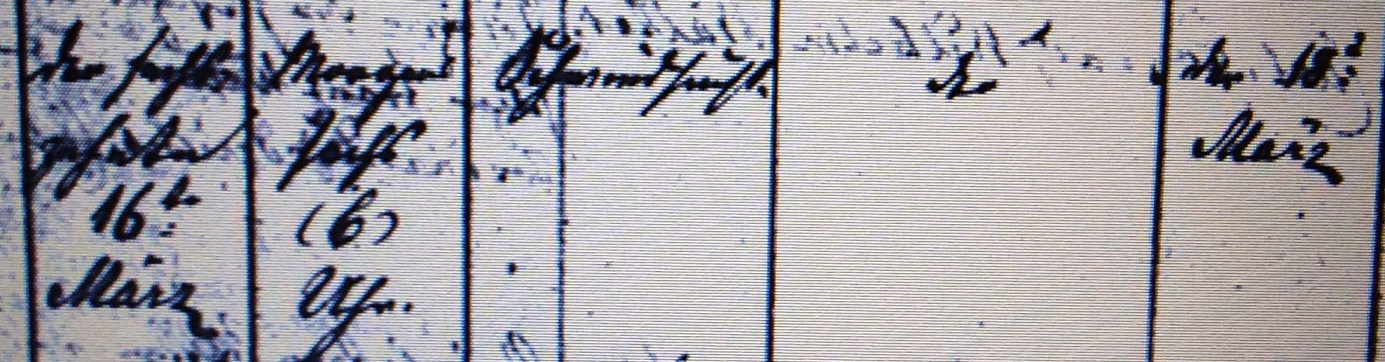 der sechs-
zehnten
16t.
März
Morgens
sechs
(6)
Uhr.
Schwindsucht.
der
den 18t.
März